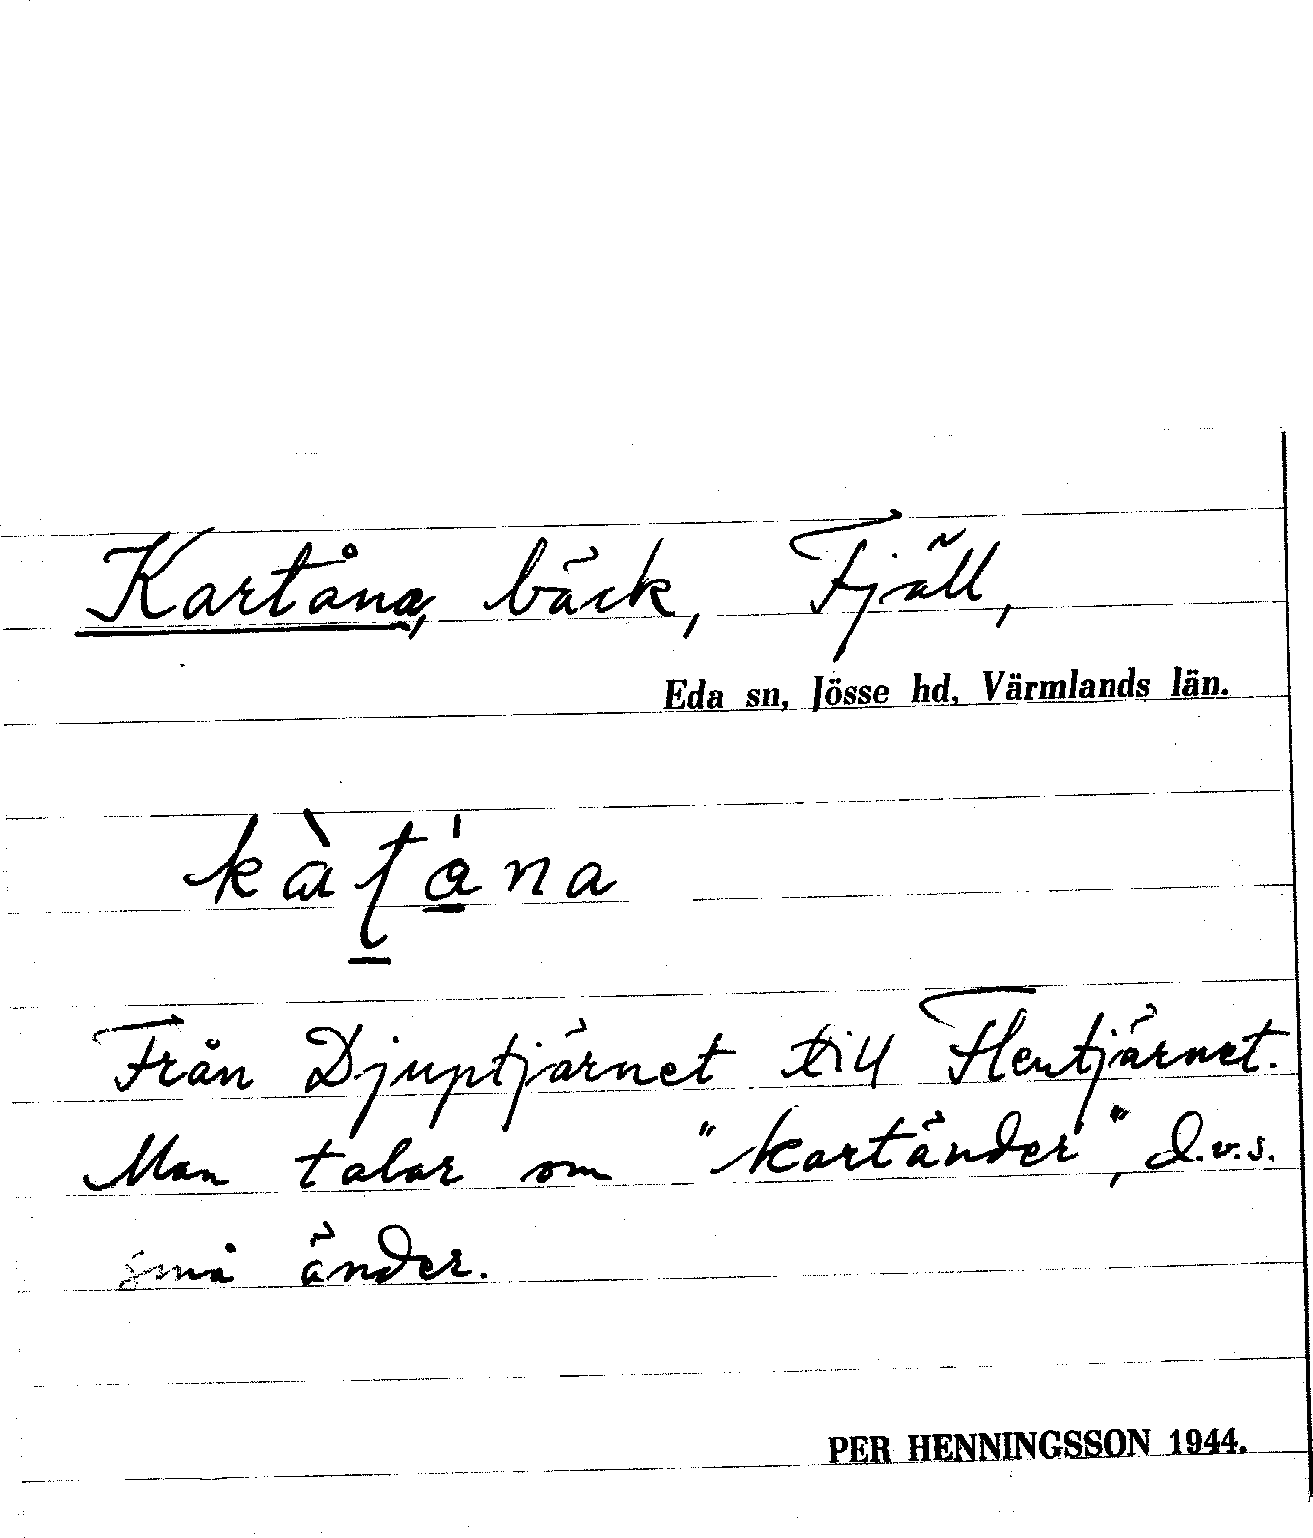 Kartåna, bäck, Fjäll,
Eda sn, Jösse hd, Värmlands län.
kàt̲a̲na
Från Djuptjärnet till Flentjärnet.
Man talar om "kartänder", d.v.s.
små änder.
PER HENNINGSSON 1944.